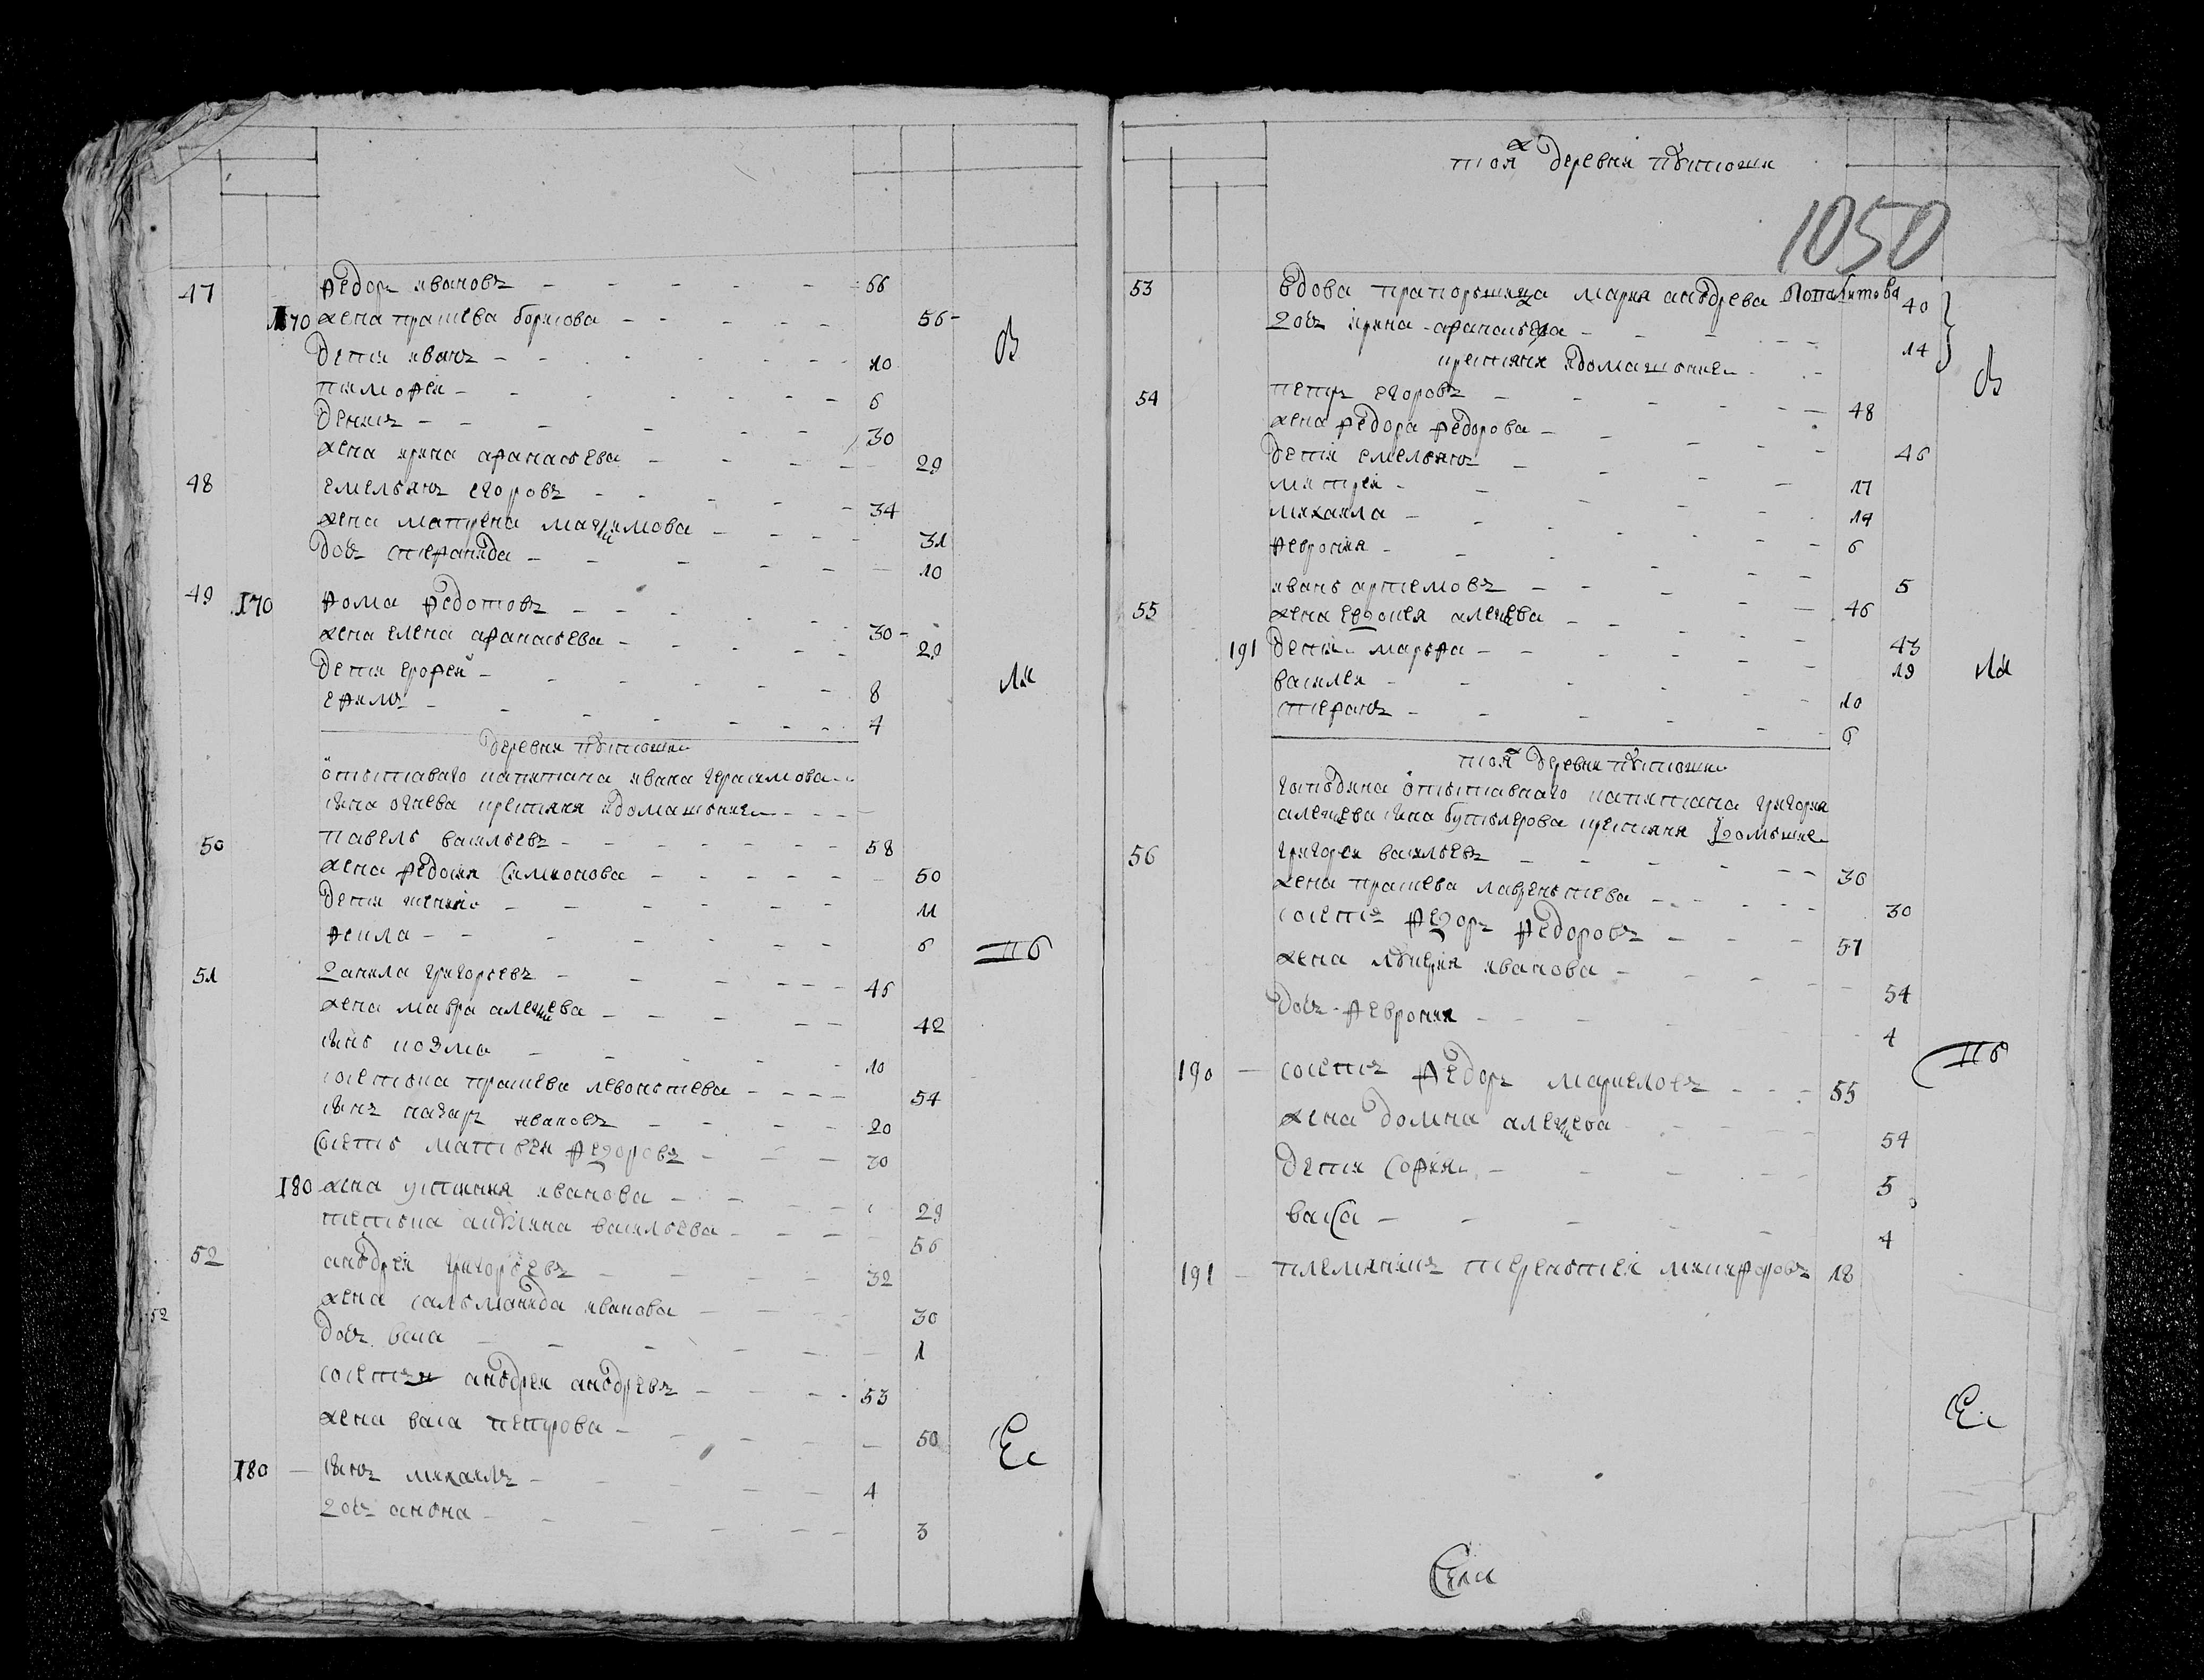 47 Ѳедоръ ивановъ 66
170 жена прасковя борисова 56
дети иванъ 10
тимофеи 6
денисъ 30
жена ирина афанасьева 29
48 емельянъ егоровъ 34
жена матрена максимова 31
дочь степанида 10
49 170 Ѳома Ѳедотовъ 30
жена елена афанасьева 29
дети ерофеи 8
еѲимъ 4
деревни
отьставного капитана ивана герасимова
сына огнева крестяня идомашьние
50 павелъ васильевъ 58
жена Ѳедосия симионова 50
дети 11
Ѳекла 6
51 данила григорьевъ 45
жена мавра алексеева 42
сынъ козма 10
прасковя левоньтева 54
сынъ назаръ ивановъ 20
матвеи Ѳедоровъ 30
180 жена устиния иванова 29
васильева 56
52 аньдреи григорьевъ 32
52
жена саламанида иванова 30
дочь васа 1
аньдреи аньдревъ 53
жена васа петрова 50
180 сынъ михаилъ 4
дочь аньна 3
В
ли
пб
Ес
тояж деревни
1050
53 вдова прапорьшица мария аньдрева 40
дочь ирина афанасьева 14
крестяня идомашьние
54 петръ егоровъ 48
жена Ѳедора Ѳедорова 46
дети емельянъ 17
митреи 14
михаила 6
Ѳевросия 5
55 иванъ артемовъ 46
жена алексева 43
191 дети марьѲа 19
василеи 10
степанъ 6
тояж деревни
господина отьставного капитана григория
алексева сына бутьлерова крестяня идомашние
56 григореи васильевъ 36
жена прасковя лавреньтева 30
Ѳедоръ Ѳедоровъ 57
жена лукеря иванова 54
дочь Ѳеврония 4
190 Ѳедоръ маркеловъ 55
жена домна алексева 54
дети соѲия 5
васса 4
191 племяникъ тереньтеи никиѲоровъ 18
В
ли
пб
Ес